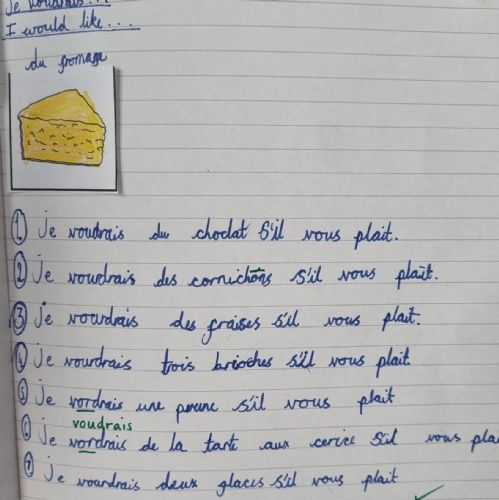 Je voudrais...
I would like....
du fromage
① Je voudrais du choclat s'il vous plait.
② Je vourdrais des cornichons s'il vous plaît.
③ Je vourdrais des fraises s'il vous plaît.
④ Je vourdrais trois brioches s'il vous plait
⑤ Je vordrais une s'il vous plait
voudrais
⑥ Je vordrais de la tarte aux cerice s'il vous plai
⑦ Je vourdrais deux glaces s'il vous plait